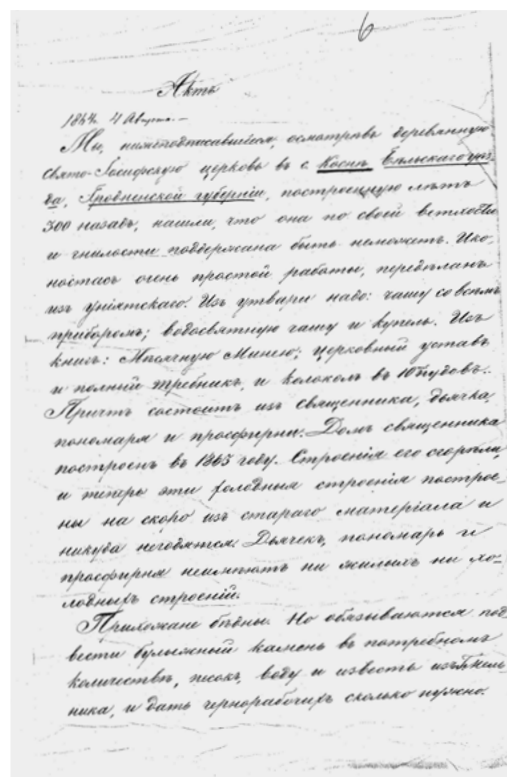 6
Актъ
1867г. 4 Августа.
Мы, нижеподписавшіеся, осмотрѣвъ деревянную
свято-Іосифскую церковь въ с. Коснѣ Бѣльскаго уѣз
да, Гродненской губерніи, построенную лѣтъ
300 назадъ, нашли, что она по своей ветхости
и гнилости поддержана быть неможетъ. Ико-
ностасъ очень простой работы, передѣланъ
изъ уніятскаго. Изъ утвари надо: чашу со всѣмъ
приборомъ; водосвятную чашу и купель. Изъ
книгъ: Мѣсячную Минею, церковный уставъ
и полный требникъ, и колоколъ въ 10 пудовъ.
Причтъ состоитъ изъ священника, дьячка
пономаря и просфирни. Домъ священника
построенъ въ 1865 году. Строенія его сгорѣли
и теперь эти холодныя строенія построе-
ны на скоро изъ стараго матеріала и
никуда негодятся. Дьячекъ, пономарь и
просфирня неимѣютъ ни жилыхъ ни хо-
лодныхъ строеній.
Прихожане бѣдны. Но обязываются под
вести булыжный камень въ потребномъ
количествѣ, песокъ, воду и известь изъ
ника, и дать чернорабочихъ сколько нужно.